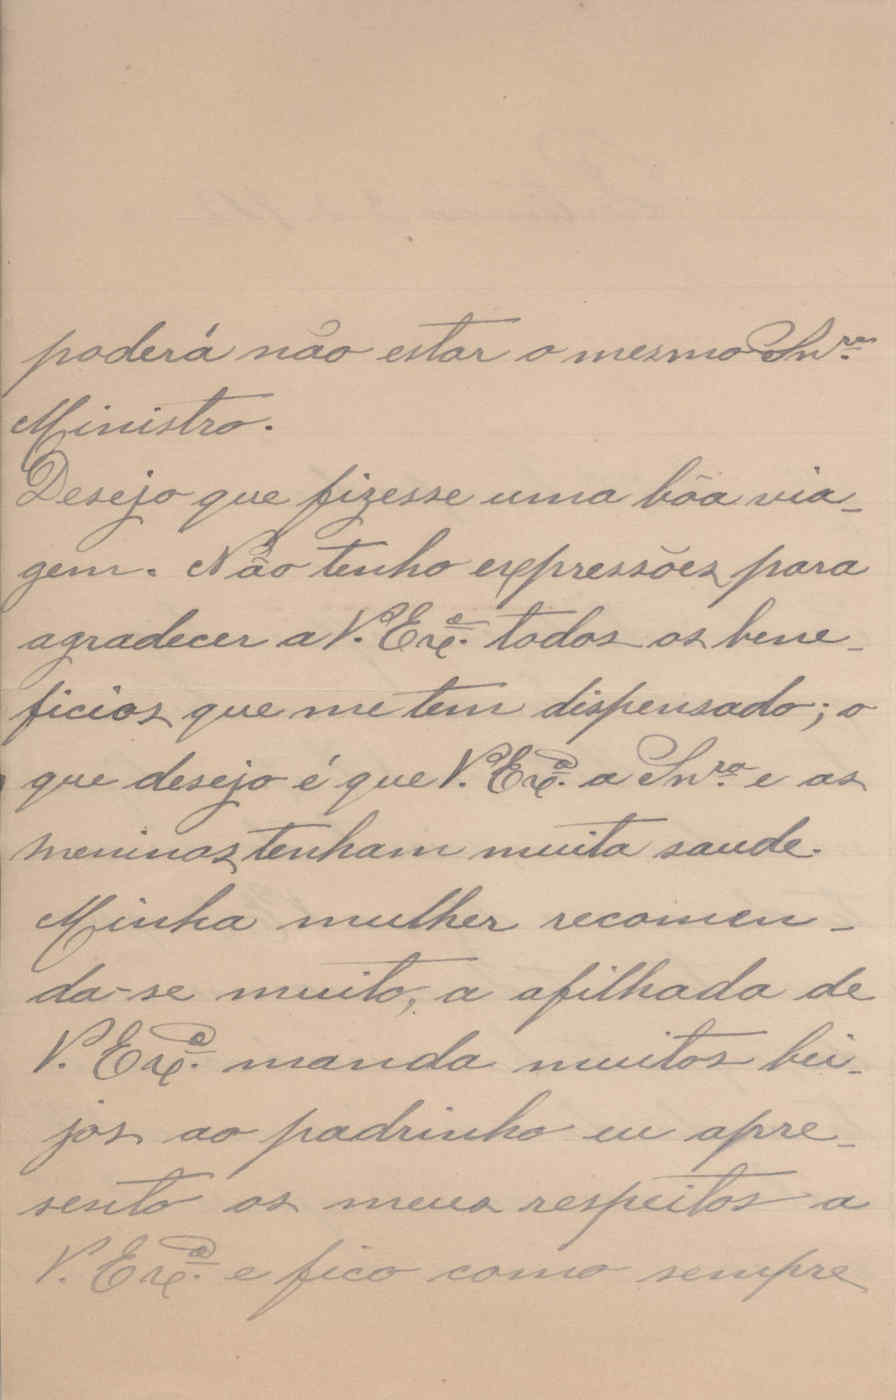 poderá não estar o mesmo Snr.
Ministro.
Desejo que fizesse uma bôa via-
gem. Não tenho expressões para
agradecer a V. Exª. todos os bene-
ficios que me tem dispensado; o
que desejo é que V. Exª. a Snrª. e as
meninas tenham muita saude.
Minha mulher recomen-
da-se muito, a afilhada de
V. Exª. manda muitos bei-
jos ao padrinho eu apre-
sento os meus respeitos a
V. Exª. e fico como sempre